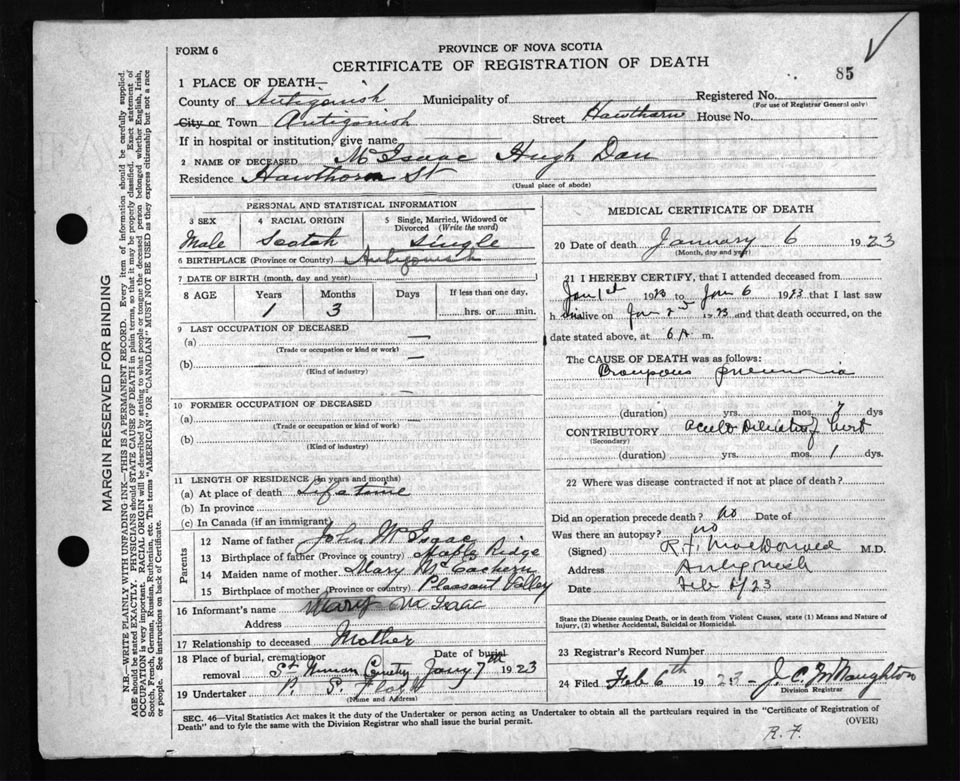 FORM 6
PROVINCE OF NOVA SCOTIA
CERTIFICATE OF REGISTRATION OF DEATH
85
1 PLACE OF DEATH—
County of Antigonish Municipality of Registered No.
(For use of Registrar General only)
City or Town Antigonish Street Hawthorn House No.
If in hospital or institution, give name
2 NAME OF DECEASED McIsaac Hugh Dan
Residence Hawthorn St
(Usual place of abode)
PERSONAL AND STATISTICAL INFORMATION
3 SEX
Male
4 RACIAL ORIGIN
Scotch
5 Single, Married, Widowed or Divorced (Write the word)
Single
6 BIRTHPLACE (Province or Country) Antigonish
7 DATE OF BIRTH (month, day and year)
8 AGE Years Months Days If less than one day,
1 3 hrs. or min.
9 LAST OCCUPATION OF DECEASED
(a) —
(Trade or occupation or kind or work)
(b) —
(Kind of industry)
10 FORMER OCCUPATION OF DECEASED —
(a)
(Trade or occupation or kind of work)
(b)
(Kind of industry)
11 LENGTH OF RESIDENCE (in years and months)
(a) At place of death Lifetime
(b) In province
(c) In Canada (if an immigrant)
Parents
12 Name of father John McIsaac
13 Birthplace of father (Province or country) Maple Ridge
14 Maiden name of mother Mary McEachern
15 Birthplace of mother (Province or country) Pleasant Valley
16 Informant's name Mary McIsaac
Address
17 Relationship to deceased Mother
18 Place of burial, cremation or removal St Ninian Cemetry Date of burial Jany 7th 1923
19 Undertaker P. S.
(Name and Address)
MEDICAL CERTIFICATE OF DEATH
20 Date of death January 6 1923
(Month, day and year)
21 I HEREBY CERTIFY, that I attended deceased from
Jan 1st 1923 to Jan 6 1923 that I last saw
h im alive on Jan 2nd 1923 and that death occurred, on the
date stated above, at 6 A m.
The CAUSE OF DEATH was as follows:
Croupous pneumonia
(duration) yrs. mos. 7 dys
CONTRIBUTORY Acute Dilatation of heart
(Secondary)
(duration) yrs. mos. 1 dys.
22 Where was disease contracted if not at place of death?
Did an operation precede death? No Date of
Was there an autopsy? no
(Signed) MacDonald M.D.
Address Antigonish
Date Feb /23
State the Disease causing Death, or in death from Violent Causes, state (1) Means and Nature of Injury, (2) whether Accidental, Suicidal or Homicidal.
23 Registrar's Record Number
24 Filed Feb 6th 1923— J. C. McNaughton
Division Registrar
SEC. 46—Vital Statistics Act makes it the duty of the Undertaker or person acting as Undertaker to obtain all the particulars required in the "Certificate of Registration of
Death" and to fyle the same with the Division Registrar who shall issue the burial permit.
(OVER)
R. F.
MARGIN RESERVED FOR BINDING
N.B.—WRITE PLAINLY WITH UNFADING INK—THIS IS A PERMANENT RECORD. Every item of information should be carefully supplied.
AGE should be stated EXACTLY. PHYSICIANS should STATE CAUSE OF DEATH in plain terms, so that it may be properly classified. Exact statement of
OCCUPATION is very important. RACIAL ORIGIN will be described by stating to what people or tongue the deceased person belonged whether English, Irish,
Scotch, French, German, Russian, Ruthenian, etc. The terms "AMERICAN" OR "CANADIAN" MUST NOT BE USED as they express citizenship but not a race
or people. See instructions on back of Certificate.